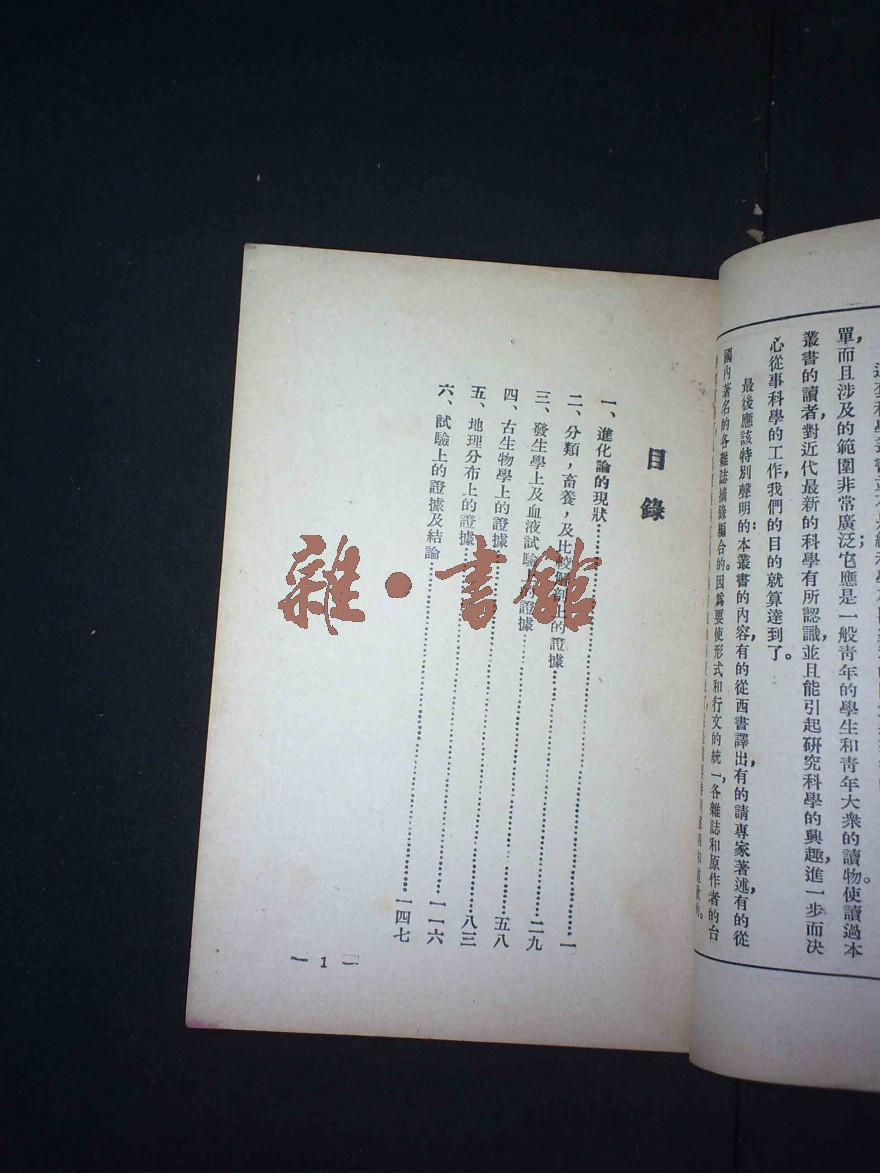 單，而且涉及的範圍非常廣泛；它應是一般靑年的學生和靑年大衆的讀物。使讀過本
叢書的讀者，對近代最新的科學有所認識，並且能引起研究科學的興趣，進一步而決
心從事科學的工作，我們的目的就算達到了。
最後應該特別聲明的：本叢書的內容，有的從西書譯出，有的請專家著述，有的從
國內著名的各雜誌摘錄編合的。因爲要使形式和行文的統一，各雜誌和原作者的台
目錄
一、進化論的現狀……一
二、分類，畜養，及比較解剖上的證據……二九
三、發生學上及血液試驗上的證據……五八
四、古生物學上的證據……八三
五、地理分布上的證據……一一六
六、試驗上的證據及結論……一四七
— 1 —
雜·書館